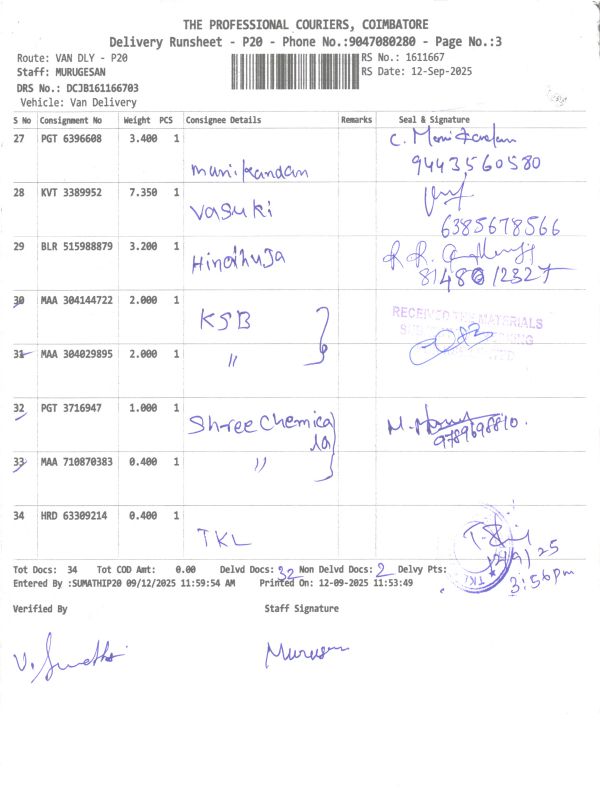 THE PROFESSIONAL COURIERS, COIMBATORE
Delivery Runsheet - P20 - Phone No.:9047080280 - Page No.:3
Route: VAN DLY - P20
RS No.: 1611667
Staff: MURUGESAN
RS Date: 12-Sep-2025
DRS No.: DCJB161166703
Vehicle: Van Delivery
S No Consignment No Weight PCS Consignee Details Remarks Seal & Signature
27 PGT 6396608 3.400 1 manikandan C. Manikandan
9443560580
28 KVT 3389952 7.350 1 Vasuki
6385678566
29 BLR 515988879 3.200 1 Hindhuja
30 MAA 304144722 2.000 1 KSB
RECEIVED THE MATERIALS
31 MAA 304029895 2.000 1 "
32 PGT 3716947 1.000 1 Shree Chemica
9789698810.
33 MAA 710870383 0.400 1 "
34 HRD 63309214 0.400 1 TKL
12/9/25
3:56pm
TKL
Tot Docs: 34 Tot COD Amt: 0.00 Delvd Docs: 32 Non Delvd Docs: 2 Delvy Pts:
Entered By :SUMATHIP20 09/12/2025 11:59:54 AM Printed On: 12-09-2025 11:53:49
Verified By Staff Signature
V. Sumathi Murugesan